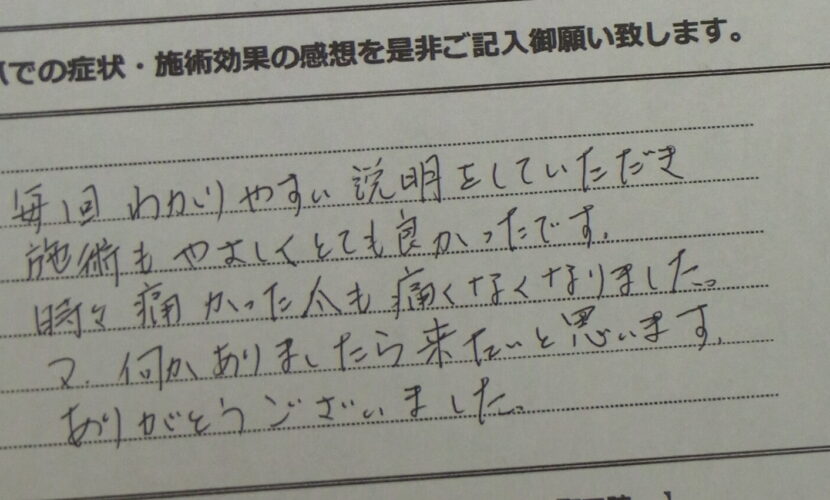 での症状・施術効果の感想を是非ご記入御願い致します。
毎回 わかりやすい 説明をしていただき
施術も やさしくとても良かったです。
時々 痛かった 人も 痛くなくなりました。
マ、何かありましたら来たいと思います。
ありがとうございました。